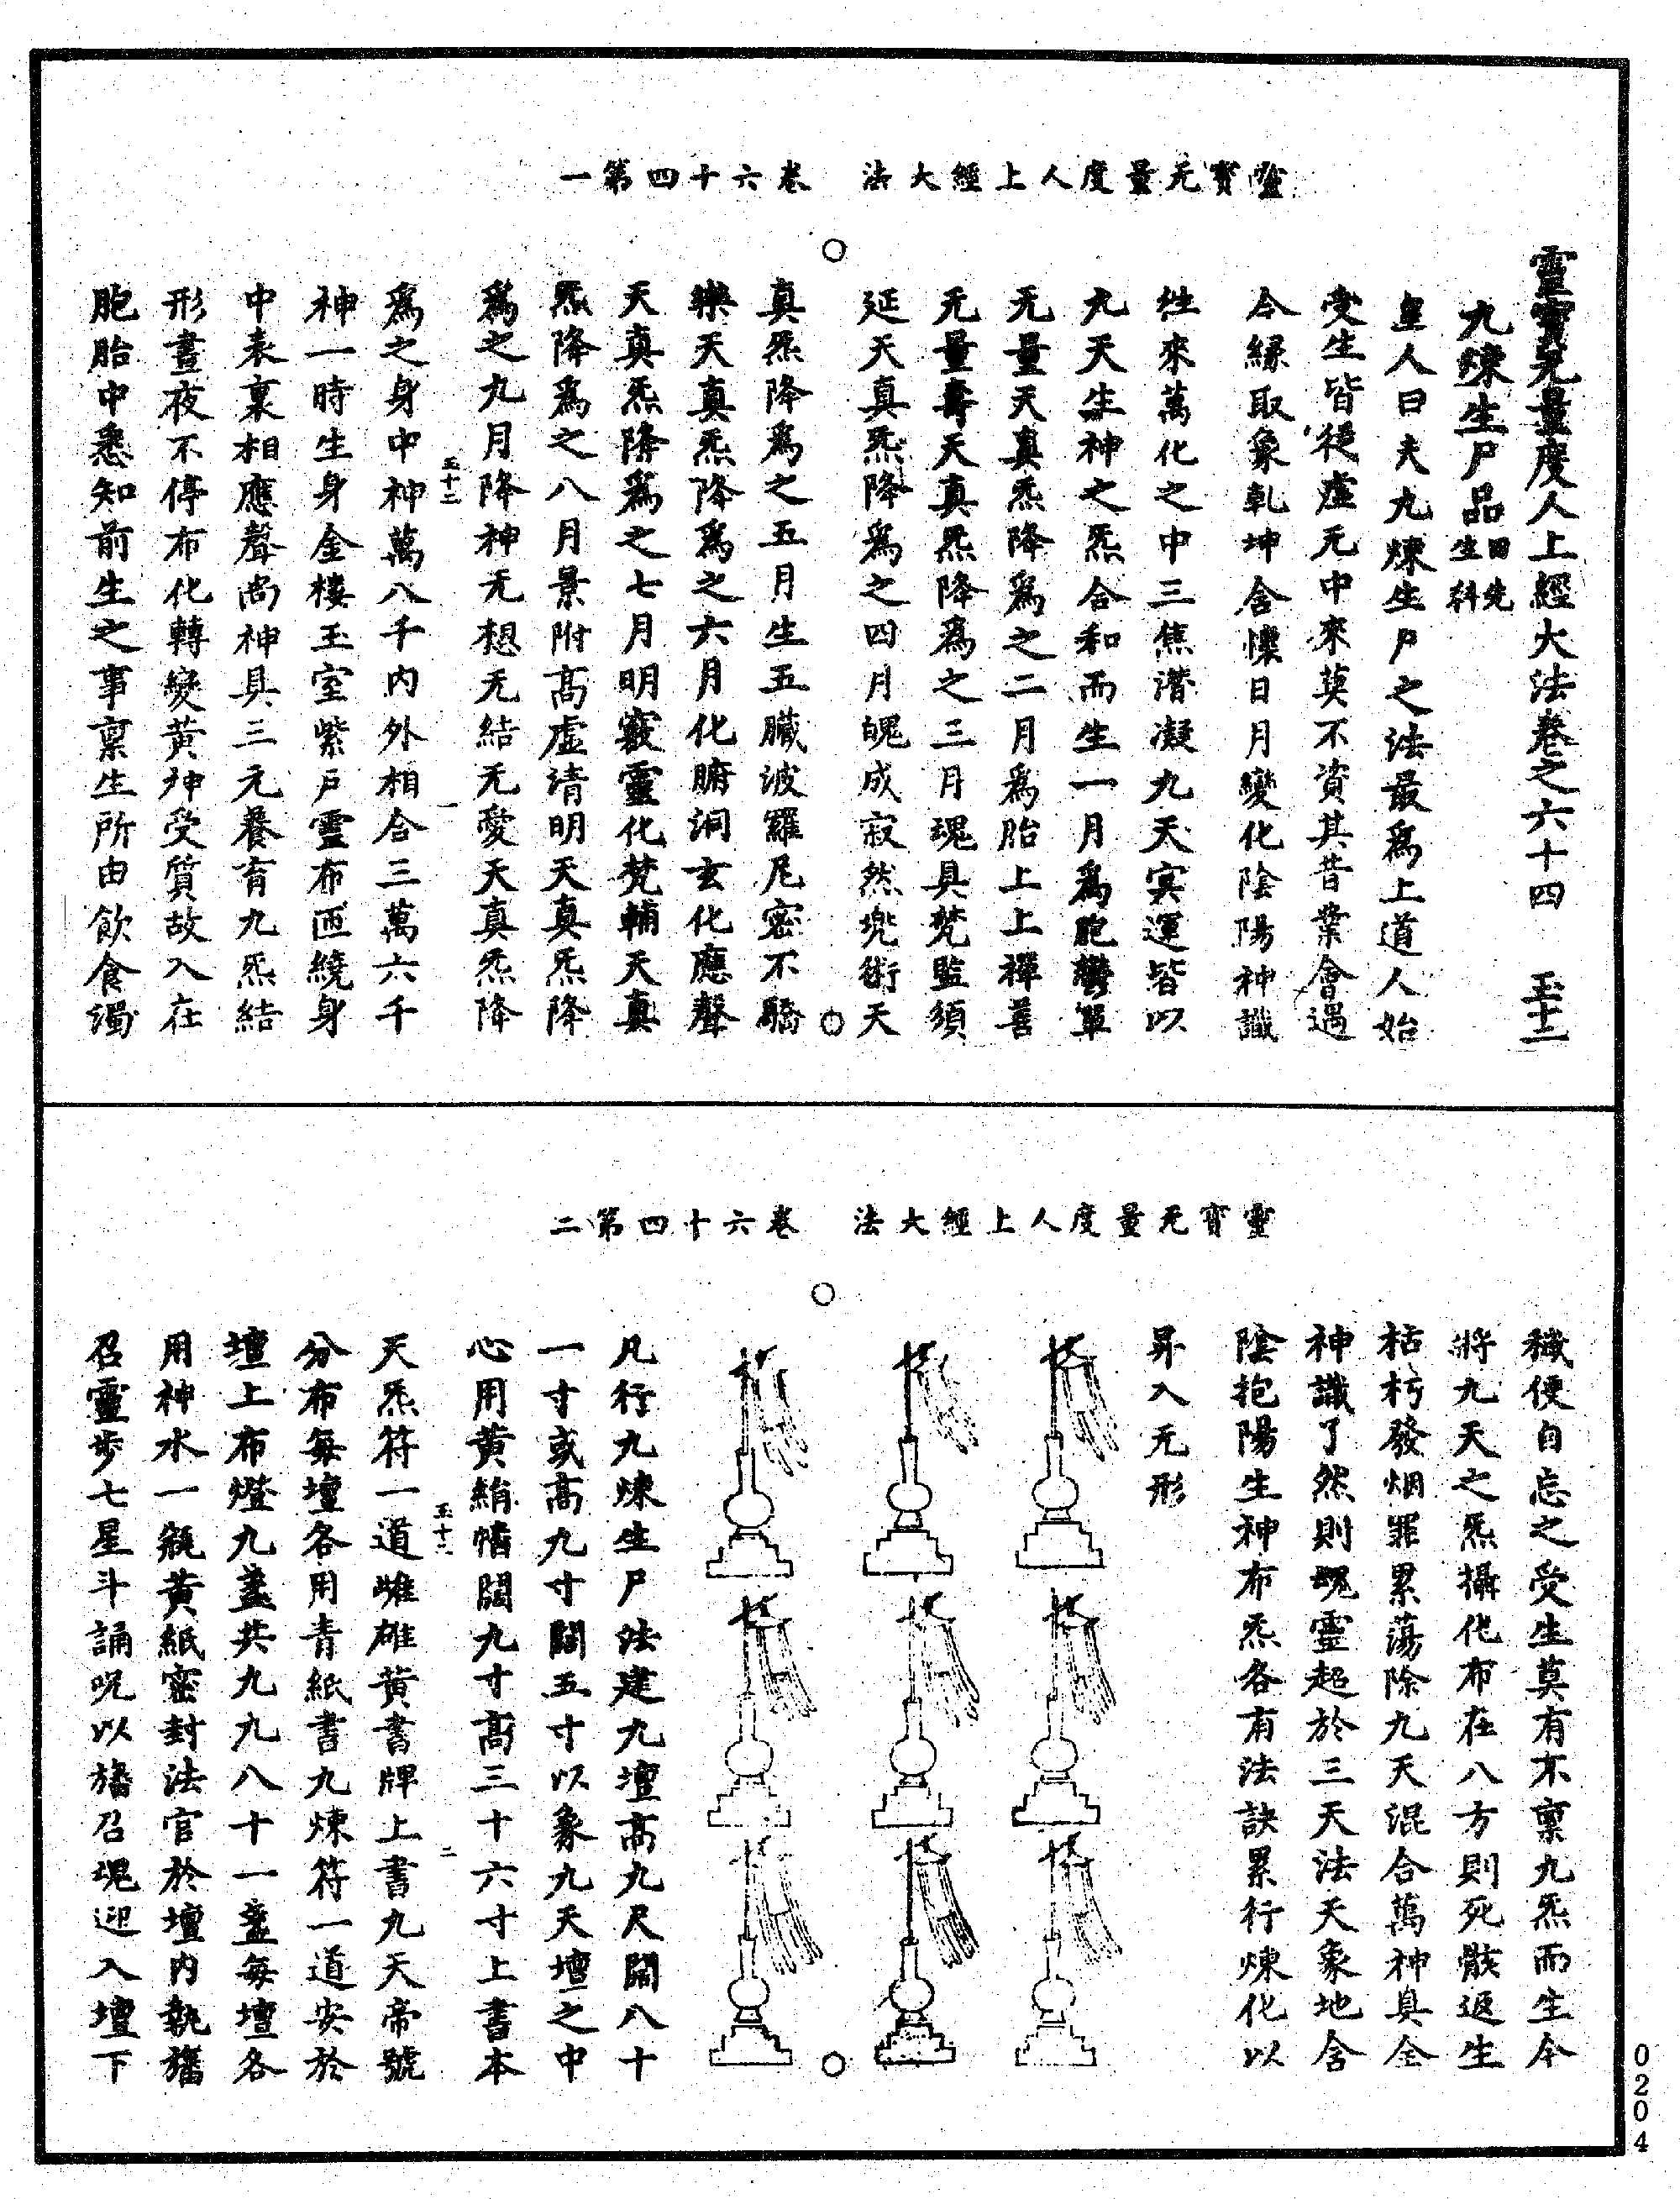 靈寶无量度人上經大法　卷六十四第一
靈寶无量度人上經大法卷之六十四　玉十二
九煉生尸品回先生科
皇人曰夫九煉生尸之法最爲上道人始
受生皆從虛无中來莫不資其昔業會遇
合緣取象乹坤含懷日月變化陰陽神識
徃來萬化之中三焦潛凝九天㝠運皆以
九天生神之炁合和而生一月爲胞鬱單
无量天真炁降爲之二月爲胎上上禪善
无量壽天真炁降爲之三月魂具梵監須
延天真炁降爲之四月魄成寂然兠術天
真炁降爲之五月生五臟波羅尼密不驕
樂天真炁降爲之六月化腑洞玄化應聲
天真炁降爲之七月明竅靈化梵輔天真
炁降爲之八月景附高虛清明天真炁降
爲之九月降神无想无結无愛天真炁降
玉十二　一
爲之身中神萬八千内外相合三萬六千
神一時生身金樓玉室紫戶靈布匝繞身
中表裏相應聲尚神具三元養育九炁結
形晝夜不停布化轉變黃神受質故入在
胞胎中悉知前生之事禀生所由飲食濁
靈寶无量度人上經大法　卷六十四第二
穢便自忘之受生莫有不禀九炁而生今
將九天之炁攝化布在八方則死骸返生
枯朽發烟罪累蕩除九天混合萬神真全
神識了然則魄靈超於三天法天象地含
陰抱陽生神布炁各有法訣累行煉化以
昇入无形
凡行九煉生尸法建九壇高九尺闊八十
一寸或高九寸闊五寸以象九天壇之中
心用黃絹幡闊九寸高三十六寸上書本
玉十二　二
天炁符一道雌雄黃書牌上書九天帝號
分布每壇各用青紙書九煉符一道安於
壇上布燈九盞共九九八十一盞每壇各
用神水一瓶黃紙密封法官於壇内執旛
召靈步七星斗誦呪以旛召魂迎入壇下
0204